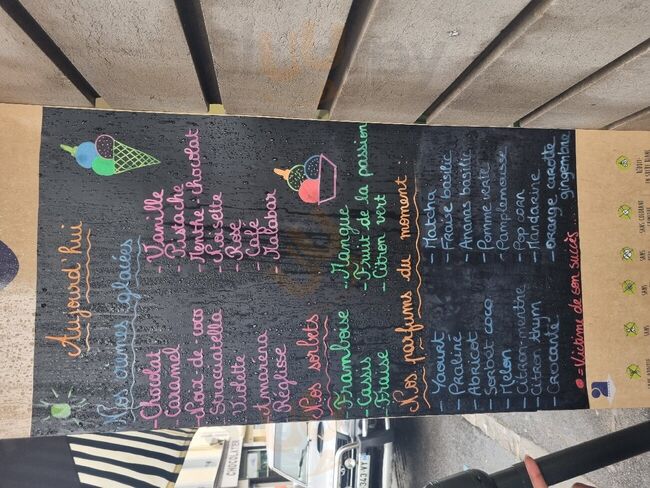 Aujourd'hui
Nos crèmes glacées
- Chocolat
- Caramel
- Noix de coco
- Straciatella
- Violette
- Amarena
- Réglisse
- Vanille
- Pistache
- Menthe chocolat
- Noisette
- Rose
- Café
- Malabar
Nos sorbets
- Framboise
- Cassis
- Fraise
- Mangue
- Fruit de la passion
- Citron vert
Nos parfums du moment...
- Yaourt
- Praliné
- Abricot
- Sorbet coco
- Melon
- Citron-menthe
- Citron thym
- Cacahuète
- Matcha
- Fraise basilic
- Ananas basilic
- Pomme verte
- Pamplemousse
- Pop corn
- Mandarine
- Orange carotte
gingembre
= Victime de son succès...
SANS
SANS COLORANT
SANS
SANS
CHOCOLATIER